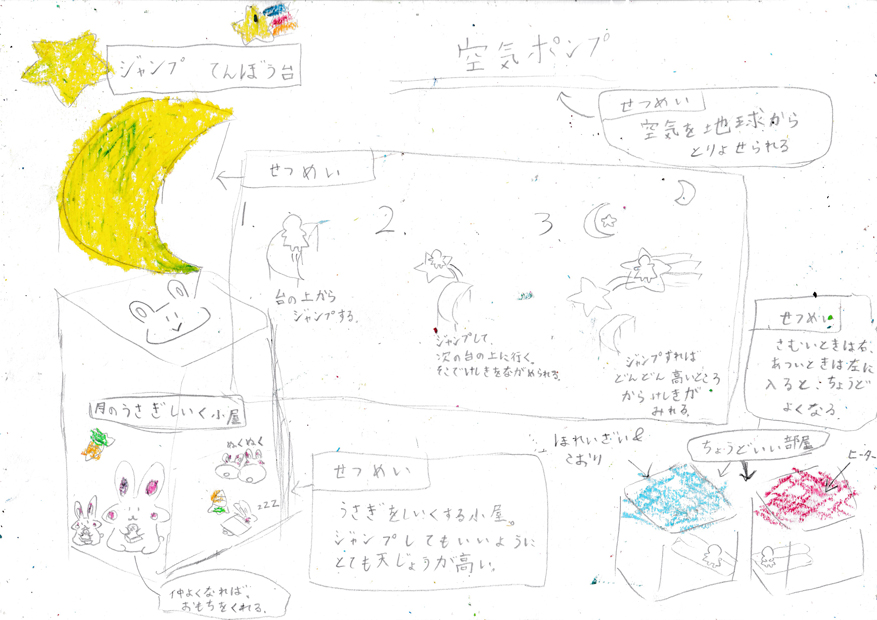 ジャンプ てんぼう台
空気ポンプ
せつめい
空気を地球から
とりよせられる
せつめい
1
2.
3
台の上から
ジャンプする。
ジャンプして、
次の台の上に行く。
そこでけしきをながめられる。
ジャンプすれば
どんどん高いところ
からけしきが
みれる。
せつめい
さむいときは右、
あついときは左に
入ると、ちょうど
よくなる。
月のうさぎしいく小屋
ぬくぬく
zzz
せつめい
うさぎをしいくする小屋。
ジャンプしてもいいように
とても天じょうが高い。
仲よくなれば、
おもちをくれる。
ほれいざい&
こおり
ちょうどいい部屋
ヒーター